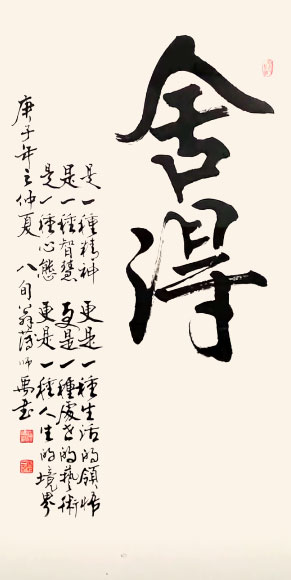 舍得
是一種精神 更是一種生活的領悟
是一種智慧 更是一種處世的藝術
是一種心態 更是一種人生的境界
庚子年之仲夏 八旬翁蔣師禹书